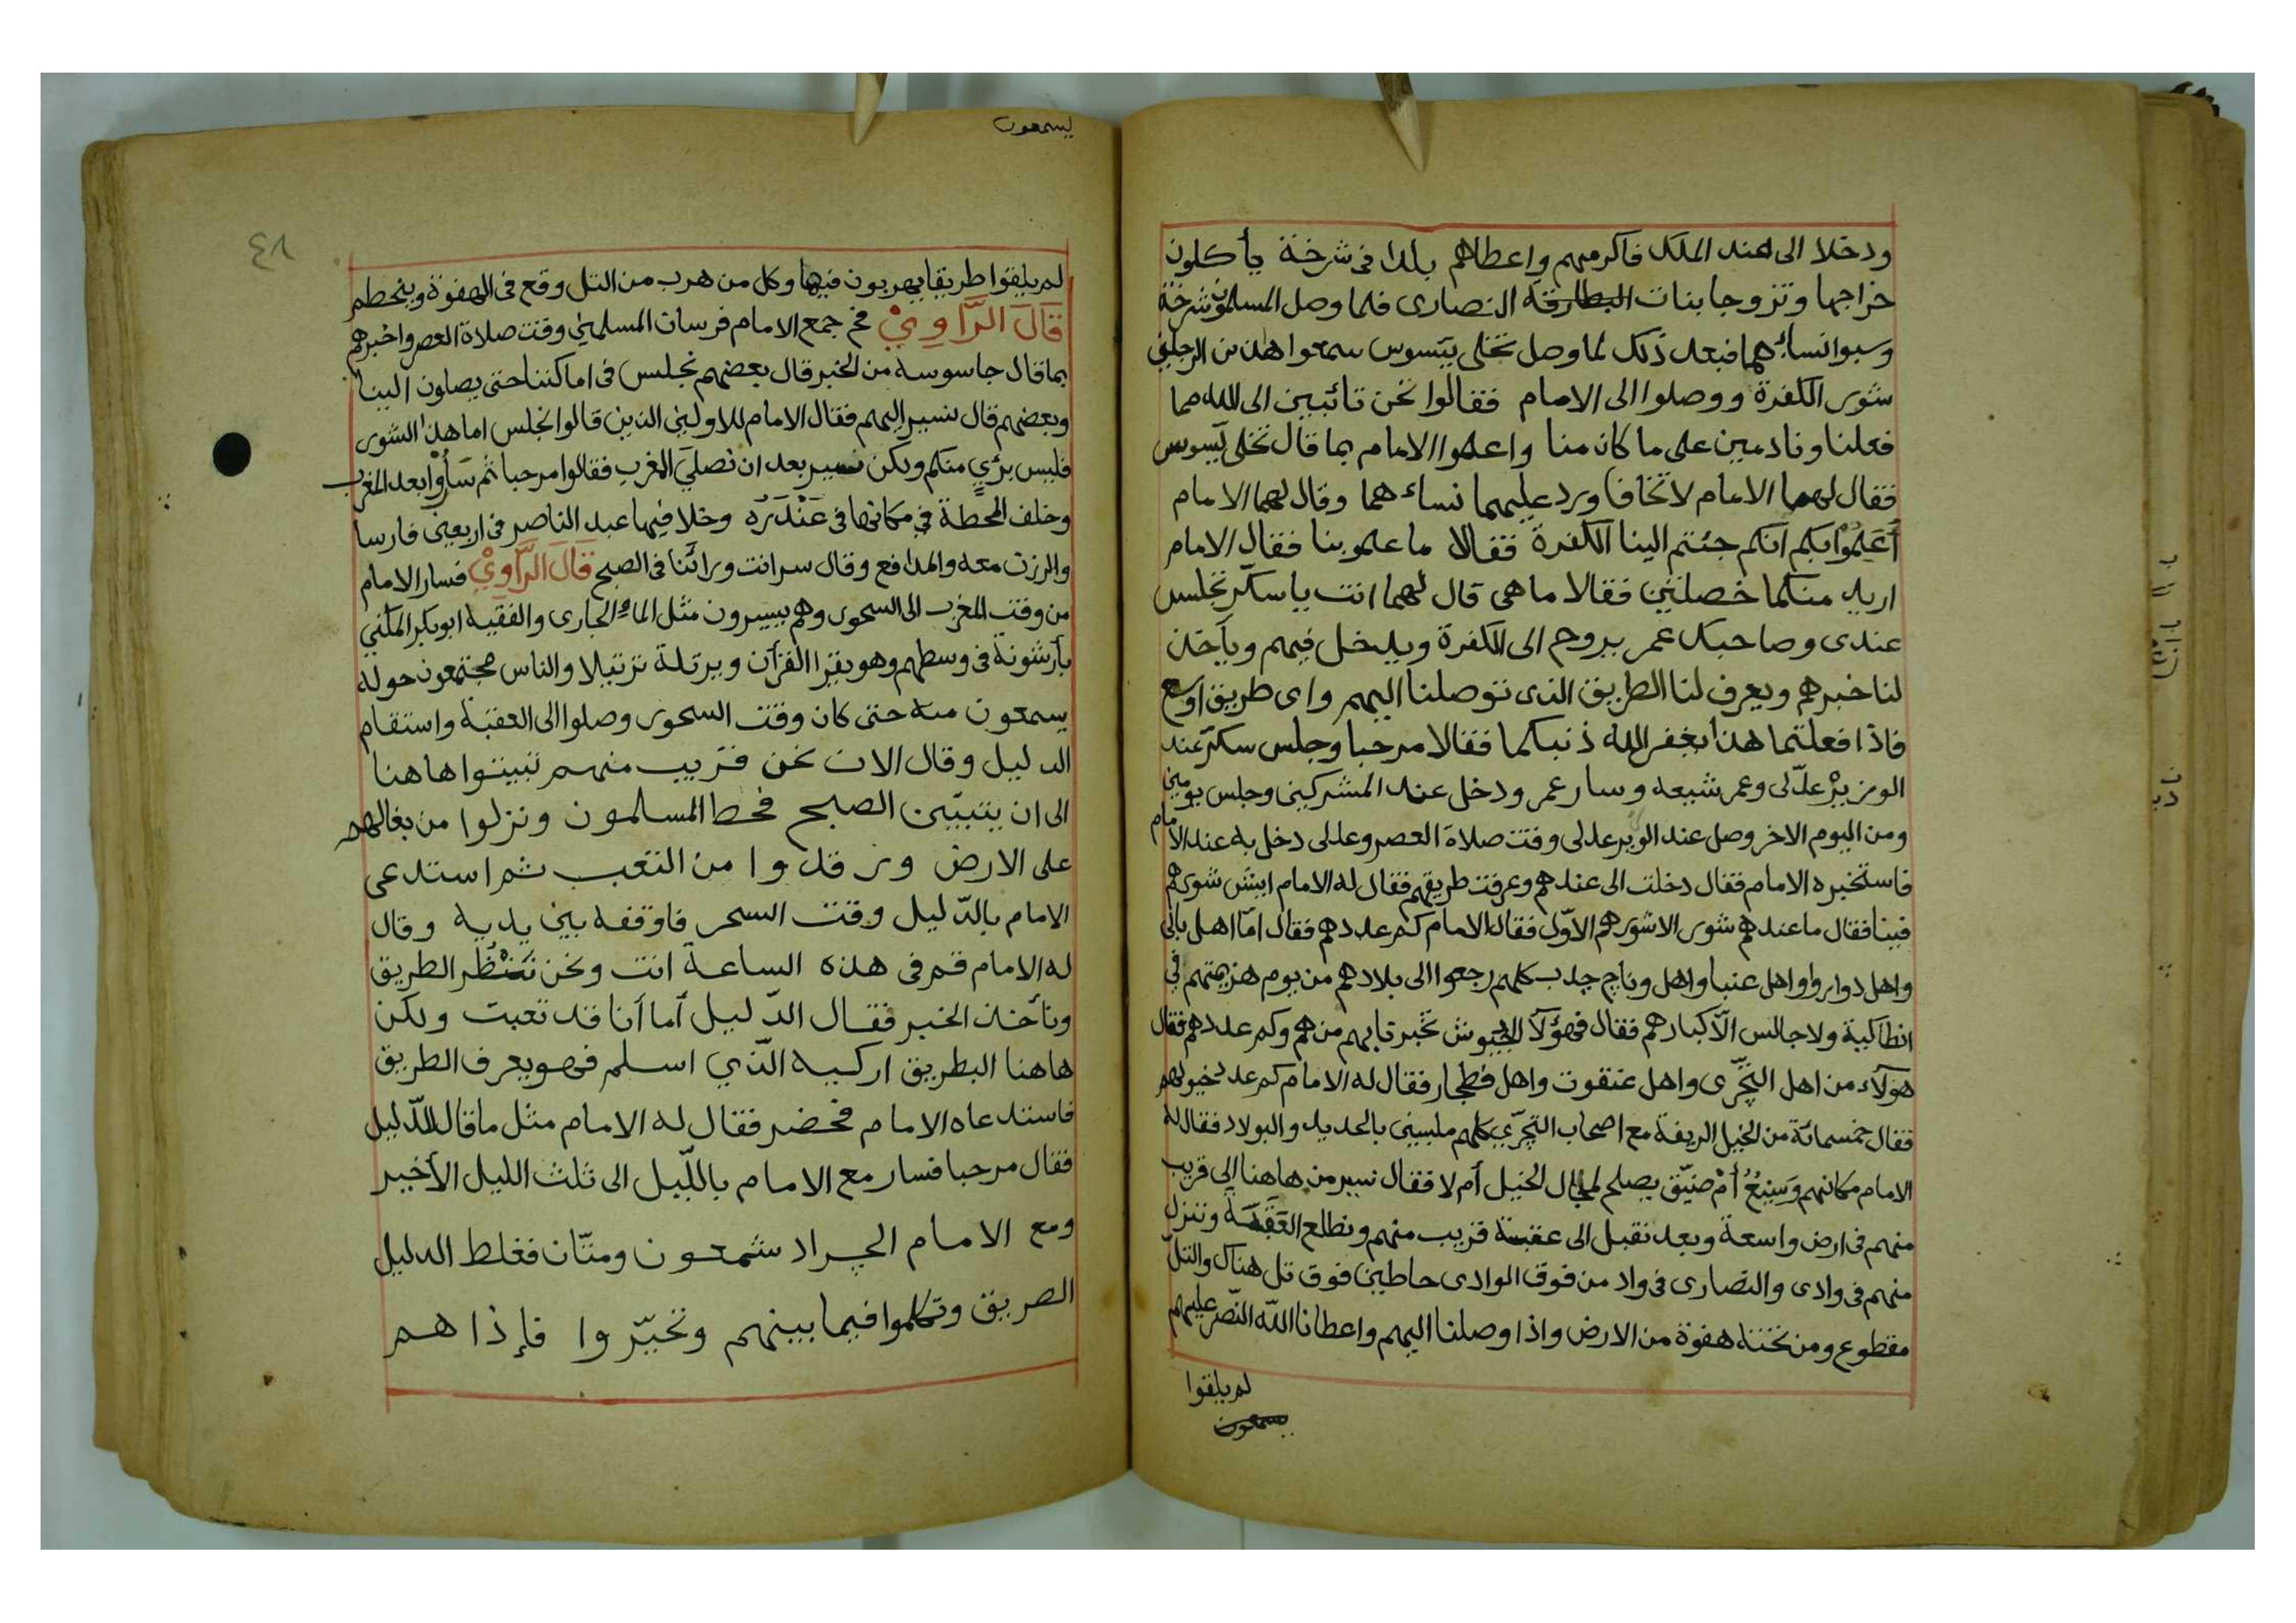 ودخلا الى عند الملك فاكرمهم واعطاهم بلدا فى شرخة يأكلون
خراجها وتزوجا بنات البطارقة النصارى فلما وصل المسلمون شرخة
وسبوا نسائهما فبعد ذلك لما وصل تخلى يتسوس سمعوا هذن الرجلين
شورى الكفرة ووصلوا الى الامام فقالوا نحن تائبين الى الله مما
فعلنا ونادمين على ما كان منا واعلموا الامام بما قال تخلى يسوس
فقال لهما الامام لا تخافا ورد عليهما نساءهما وقال لهما الامام
أعَلِمُوْا بكم انكم جئتم الينا الكفرة فقالا ما علمو بنا فقال الامام
اريد منكما خصلتين فقالا ما هى قال لهما انت ياسكر تجلس
عندى وصاحبك عمر يروح الى الكفرة ويدخل فيهم ويأخذ
لنا خبرهم ويعرف لنا الطريق الذى توصلنا اليهم واى طريق اوسع
فاذا فعلتما هذا يغفر الله ذنبكما فقالا مرحبا وجلس سكر عند
الوزير عدّلى وعمر شيعه وسار عمر ودخل عند المشركين وجلس يومين
ومن اليوم الاخر وصل عند الوير عدلى وقت صلاة العصر وعدلى دخل به عند الامام
فاستخبره الامام فقال دخلت الى عندهم وعرفت طريقهم فقال له الامام ايش شورهم
فينا فقال ما عندهم شورى الا شورهم الاوّل فقال الامام كم عددهم فقال امّا اهل بالى
واهل دوارو واهل عنبا واهل وناج جدب كلهم رجعوا الى بلادهم من يوم هزيمتهم فى
انطاكية ولا جالس الّا كبارهم فقال فهؤلآ الجيوش تخبرنا بهم من هم وكم عددهم فقال
هؤلاء من اهل التجرى واهل عنقوت واهل فطجار فقال له الامام كم عد خيولهم
فقال خمسمائة من الخيل الريفة مع اصحاب التجرّي كلهم ملبسين بالحديد والبولاد فقال له
الامام مكانهم وَسِيْعُ أمْ ضيّق يصلح لمجال الخيل أم لا فقال نسير من هاهنا إلى قريب
منهم فى ارض واسعة وبعد نقبل الى عقبة قريب منهم ونطلع العَقَبَة وننزل
منهم فى وادى والنصارى فى واد من فوق الوادى حاطين فوق تل هناك والتلّ
مقطوع ومن تحته هفوة من الارض واذا وصلنا اليهم واعطانا الله النّصر عليهم
لم يلقوا
يسمعون
يسمعون
٤٨
لم يلقوا طريقا يهربون فيها وكل من هرب من التل وقع فى الهفوة وينحطم
قَالَ الرَّاوِيْ ثم جمع الامام فرسان المسلمين وقت صلاة العصر واخبرهم
بما قال جاسوسه من الخبر قال بعضهم نجلس فى اماكننا حتى يصلون الينا
وبعضهم قال نسير إليهم فقال الامام للاولين الذين قالوا نجلس اما هذا الشورى
فليس برٍيّ منكم ولكن نسير بعد ان نصلي المغرب فقالوا مرحبا ثم سَارُوْا بعد المغرب
وخلف المحطة فى مكانها فى عَنْدَرَه وخلا فيها عبد الناصر فى اربعين فارسا
والرزت معه والمدافع وقال سر انت ورائنا فى الصبح قَالَ الرَّاوِيْ فسار الامام
من وقت المغرب الى السحور وهم يسيرون مثل الماء الجارى والفقيه ابو بكر المكني
بأرشونة فى وسطهم وهو يقرا القرآن ويرتلة ترتيلا والناس مجتمعون حوله
يسمعون منه حتى كان وقت السحور وصلوا الى العقبة واستقام
الدليل وقال الان نحن قريب منهم نبيتوا هاهنا
الى ان يتبيّن الصبح فحط المسلمون ونزلوا من بغالهم
على الارض ورقدوا من التعب ثم استدعى
الامام بالدّليل وقت السحر فاوقفه بين يديه وقال
له الامام قم فى هذه الساعة انت ونحن نَنْظُر الطريق
ونأخذ الخبر فقال الدّليل أما أنا قد تعبت ولكن
هاهنا البطريق اركيه الّذي اسلم فهو يعرف الطريق
فاستدعاه الامام فحضر فقال له الامام مثل ما قال للدّليل
فقال مرحبا فسار مع الامام باللّيل الى ثلث الليل الأخير
ومع الامام الجراد شمعون ومتّان فغلط الدليل
الصريق وتكلموا فيما بينهم وتحيّروا فإذا هم